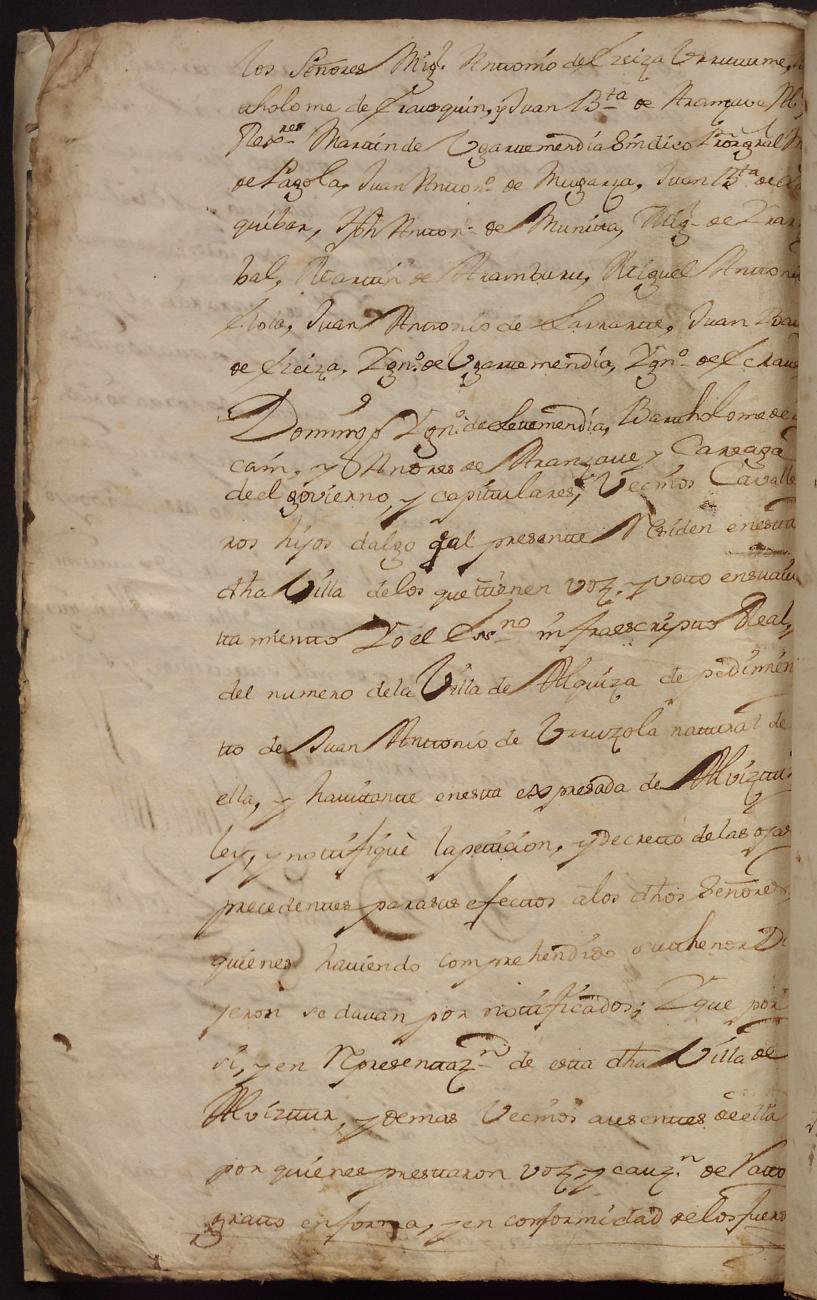 los Señores Mig.l Anttonio de Ereiza
tholome de y Juan B.ta de Aramburu
Rex.res Martin de Ugartemendia Síndico Pror gral
de Sagola, Juan Anton.o de Mugarza, Juan B.ta de
quibar, Jph Anton.o de Munitta, Mig.l de
bal, Martin de Aramburu, Miguel Antonio
Juan Anttonio de Larrartte, Juan Bau
de Ereiza, Ygn.o de Ugartemendia, Ygn.o de
Domingo Ygn.o de Letemendia, Bartholome de
cain, y Andres de Aranzave y Careaga
de el govierno, y capitulares, Vecinos Cavalle
ros hijos dalgo q al presentte Residen en estta
dha Villa de los que tienen voz, y votto en su aiun
ttamientto Yo el Ess.no infraescriptto Real,
del numero de la Villa de Alquiza de pedimen
tto de Juan Anttonio de Urruzola nattural de
ella, y havittantte en estta expresada de Alvizttur
ley, y nottifiquè la petticion, y decretto de las ojas
precedenttes para sus efecttos a los dhos Señores,
quienes haviendo comprehendido su thenor Di
jeron se davan por nottificados; Y que por
si, y en Representtaz.n de estta dha Villa de
Alvizttur, y demas Vecinos ausenttes de ella
por quienes presttaron voz, y cauz.n de Ratto
gratto en forma, y en conformidad de los fuero